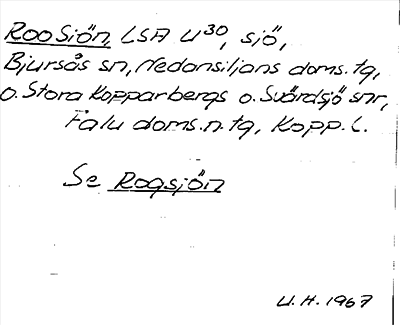 Roo Siön, LSA U³⁰, sjö,
Bjursås sn, Nedansiljans doms.tg,
o. Stora Kopparbergs o. Svärdsjö snr,
Falu doms.n.tg, Kopp. l.
Se Rogsjön
U.H. 1967